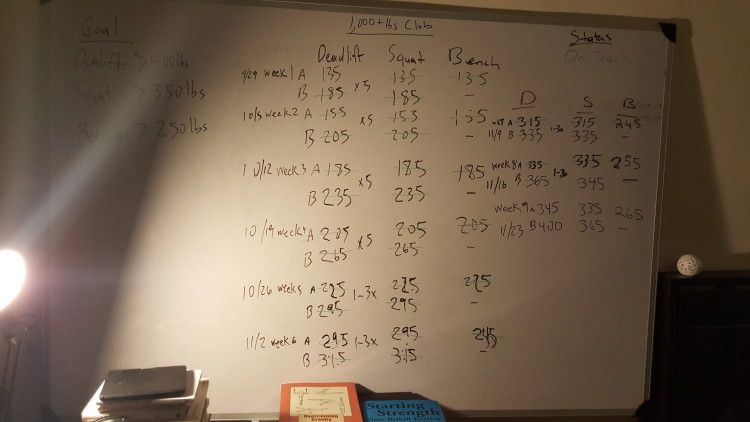 Goal
Deadlift > 400lbs
Squat > 350lbs
Bench > 250lbs
1,000+lbs Club
Deadlift Squat Bench
9/29 week 1 A 135 x5 135 135
B 185 185 -
10/5 week 2 A 155 x5 155 155
B 205 205 -
10/12 week 3 A 185 x5 185 185
B 235 235 -
10/19 week 4 A 205 x5 205 205
B 265 265 -
10/26 week 5 A 225 1-3x 225 225
B 295 295 -
11/2 week 6 A 295 1-3x 295 245
B 315 315 -
Status
On Track
D S B
A 315 1-3x 315 245
11/9 B 335 335 -
week 8 A 335 1-3x 335 255
11/16 B 365 345 -
week 9 A 345 335 265
11/23 B 400 365 -
Overcoming
Gravity
Starting
Strength
Basic Barbell Training